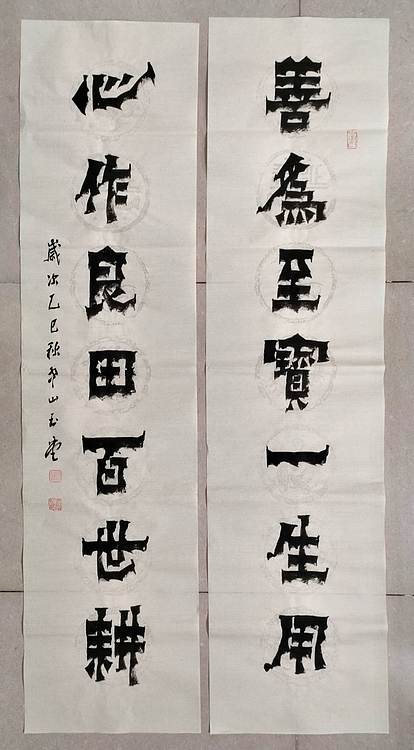 善為至寶一生用
心作良田百世耕
歲次乙巳秋尧山玉堂